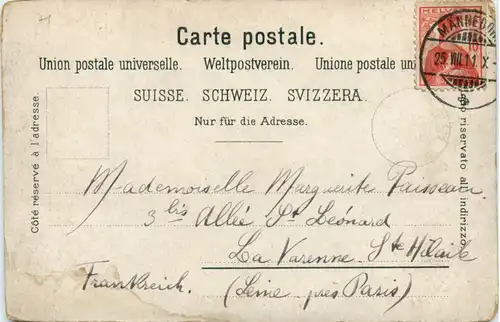 Carte postale.
Union postale universelle. Weltpostverein. Unione postale un
SUISSE. SCHWEIZ. SVIZZERA.
Nur für die Adresse.
Côté réservé à l'adresse.
riservato all'indirizzo
HELV
10
MÄNNEDORF
25.VIII.11.X-
Mademoiselle Marguerite
3 bis Allée St Léonard
La Varenne-Ste Hilaire
Frankreich. (Seine près Paris)